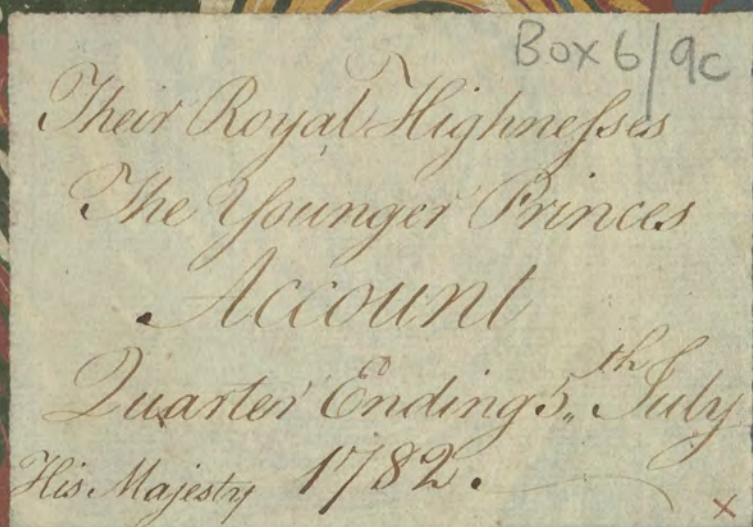 Box 6/9c
Their Royal Highneſses
The Younger Princes
Account
Quarter Ending 5th July
His Majesty 1782.
x